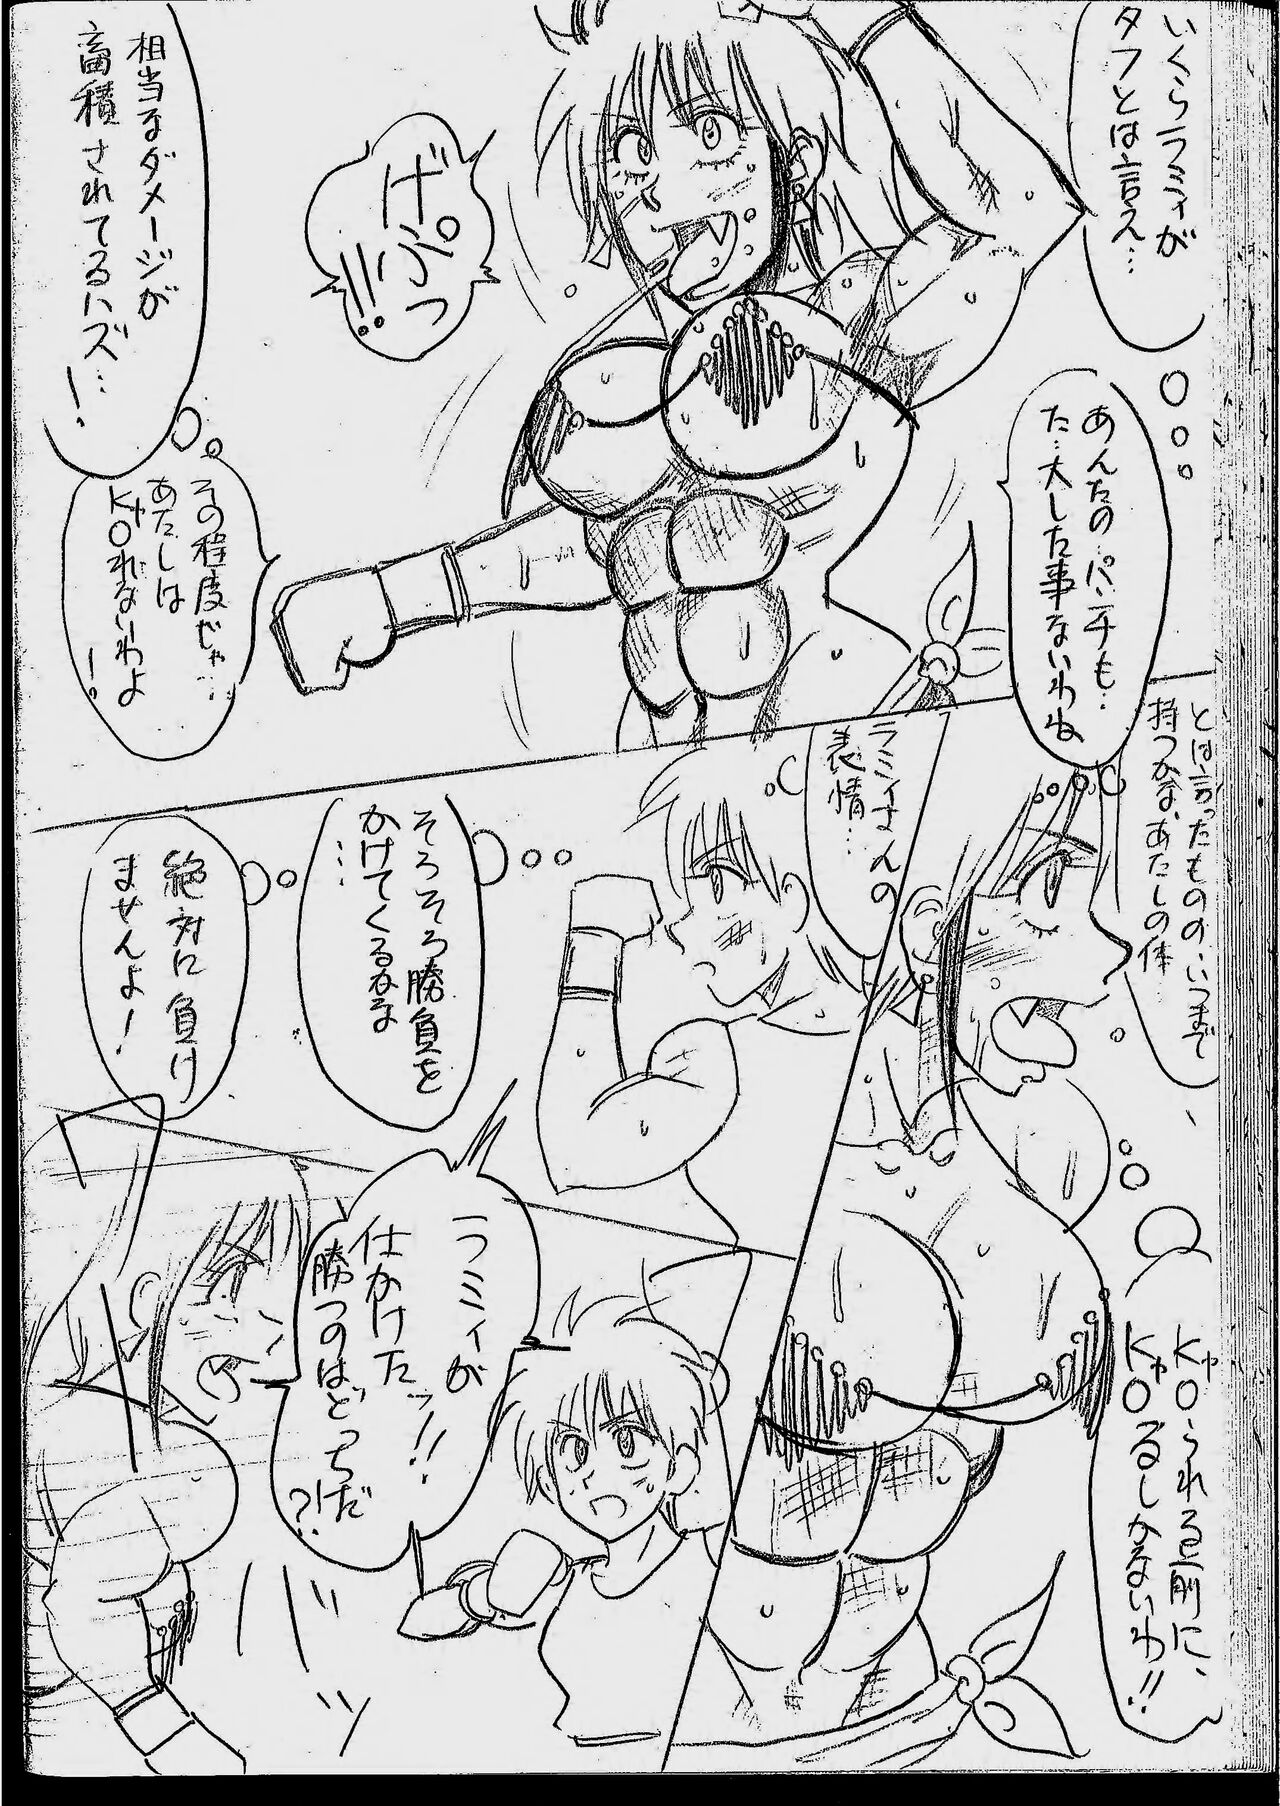 いくらラミィが
タフとは言え…
げぷっ
!!!
相当なダメージが
畜積されてるハズ…
!
あんたのパンチも…
た…大した事ないわね
その程度じゃ…
あたしは
KOれないわよ
!
とは言ったものの、いつまで
持つかな、あたしの体
KOられる前に、
KOるしかないわ!!
ラミィさんの
表情…
そろそろ勝負を
かけてくるかな
…
絶対に負け
ませんよ!
ラミィが
仕かけたッ!!
勝つのはどっちだ
?!